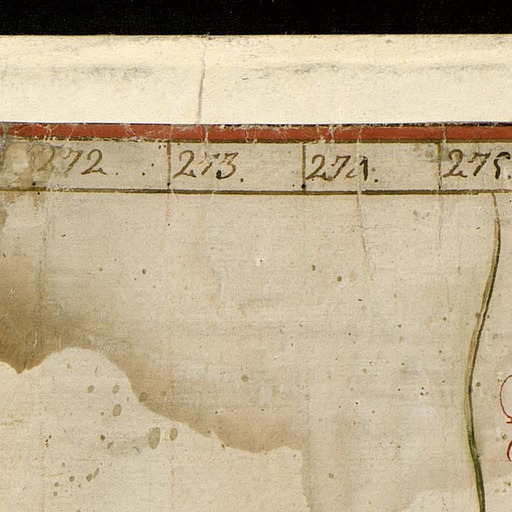 272. 273. 274. 275.